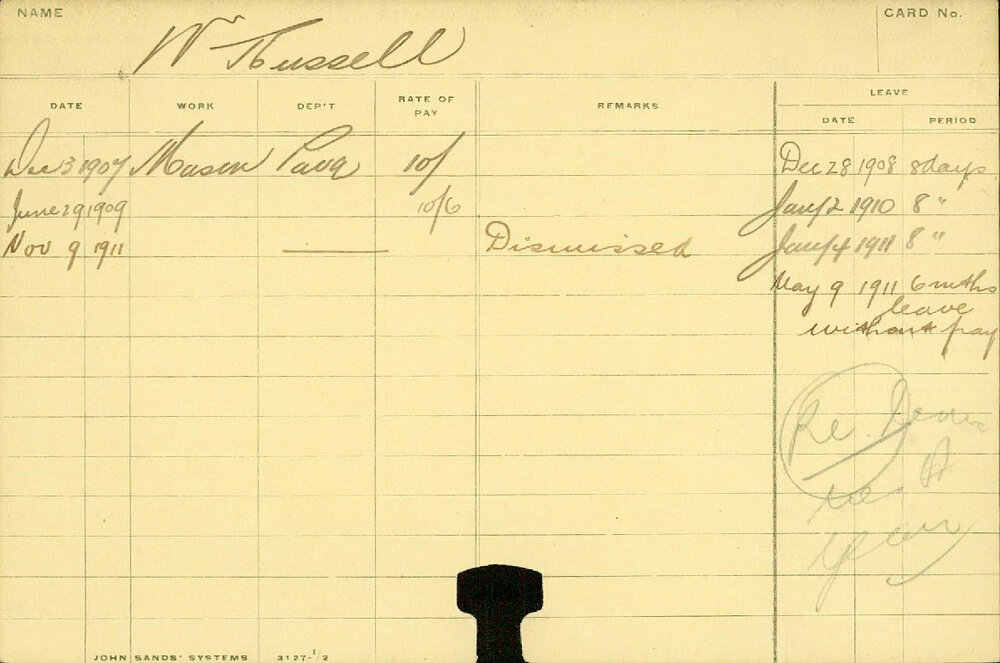 NAME
CARD No.
Wm Russell
DATE WORK DEP'T RATE OF PAY REMARKS LEAVE
DATE PERIOD
Dec 3 1907 Mason Pavg 10/ Dec 28 1908 8 days
June 29 1909 10/6 Jany 2 1910 8 "
Nov 9 1911 Dismissed Jany 4 1911 8 "
May 9 1911 6 mths
leave
without pay
Re
year
JOHN SANDS' SYSTEMS 3127-1/2